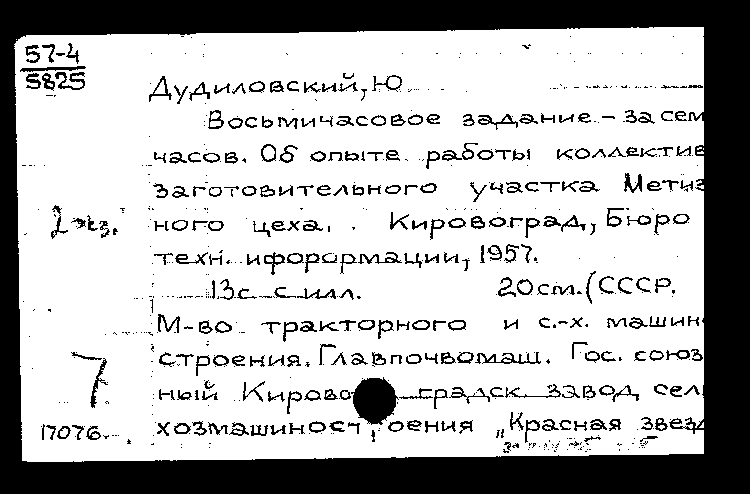 57-4
5825
Дудиловский, Ю
Восьмичасовое задание - за сем
часов. Об опыте работы коллектив
заготовительного участка Метиз
2 экз. ного цеха. . Кировоград, Бюро
техн. ифорормации, 1957.
13с с илл. 20 см. (СССР.
М-во тракторного и с.-х. машин
строения. Главпочвомаш. Гос. союз
7 ный Кировоградск. завод сель
17076 хозмашиностроения „Красная звезд